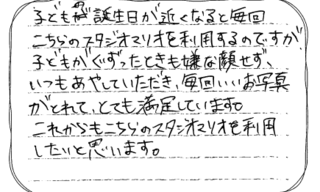 子どもが誕生日が近くなると毎回
こちらのスタジオマリオを利用するのですが、
子どもがぐずったときも嫌な顔せず、
いつもあやしていただき、毎回いいお写真
がとれて、とても満足しています。
これからもこちらのスタジオマリオを利用
したいと思います。